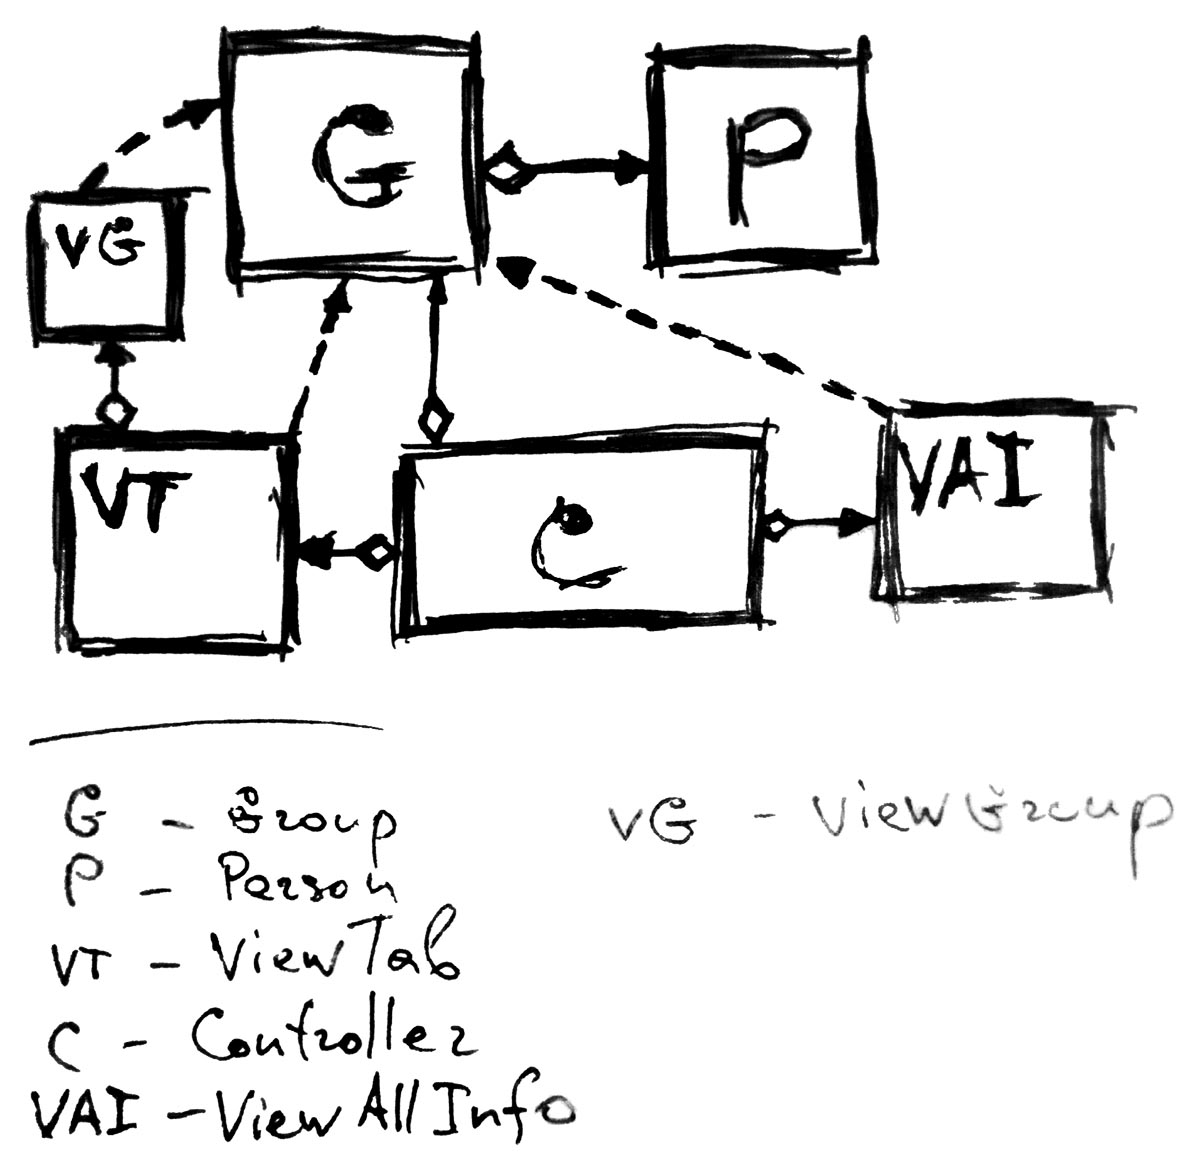 G
P
VG
VT
C
VAI
G - Group
P - Person
VT - ViewTab
C - Controller
VAI - ViewAllInfo
VG - ViewGroup